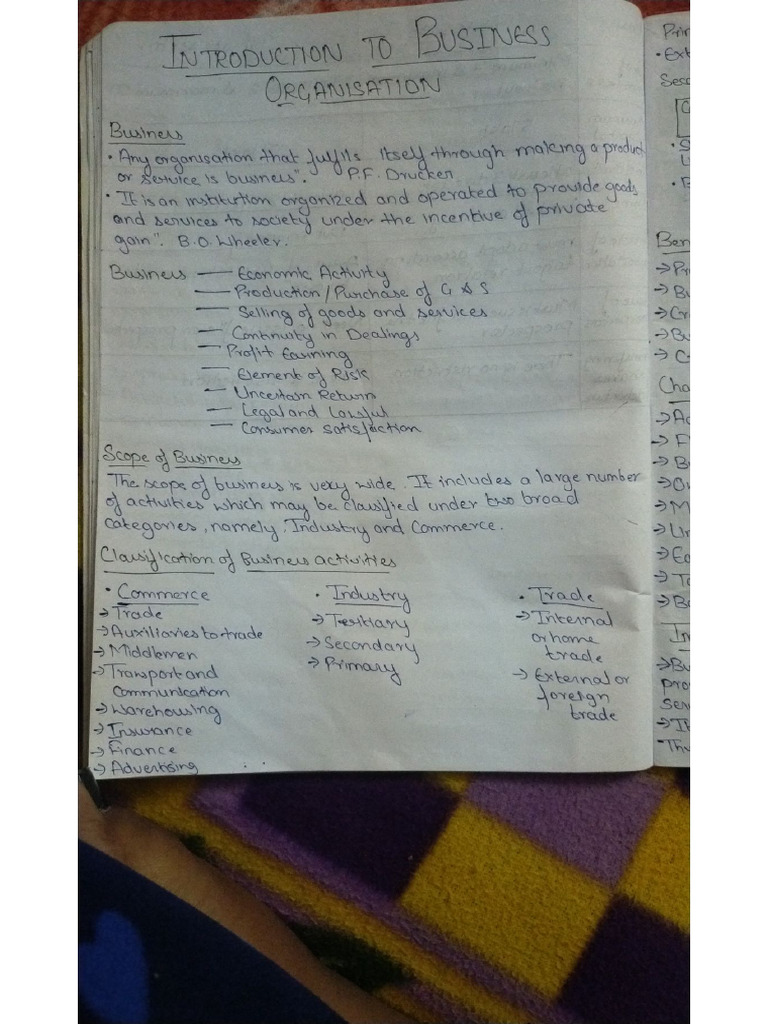 INTRODUCTION TO BUSINESS
ORGANISATION
Business
• Any organisation that fulfils itself through making a product
or service is business". P.F. Drucker.
• It is an institution organized and operated to provide goods
and services to society under the incentive of private
gain". B.O. Wheeler.
Business — Economic Activity
— Production/Purchase of G & S
— Selling of goods and services
— Continuity in Dealings
— Profit Earning
— Element of Risk
— Uncertain Return
— Legal and Lawful
— Consumer satisfaction
Scope of Business
The scope of business is very wide. It includes a large number
of activities which may be classified under two broad
categories, namely. Industry and Commerce.
Classification of Business activities
• Commerce
→ Trade
→ Auxiliaries to trade
→ Middlemen
→ Transport and
communication
→ Warehousing
→ Insurance
→ Finance
→ Advertising
• Industry
→ Tertiary
→ Secondary
→ Primary
• Trade
→ Internal
or home
trade
→ External or
foreign
trade